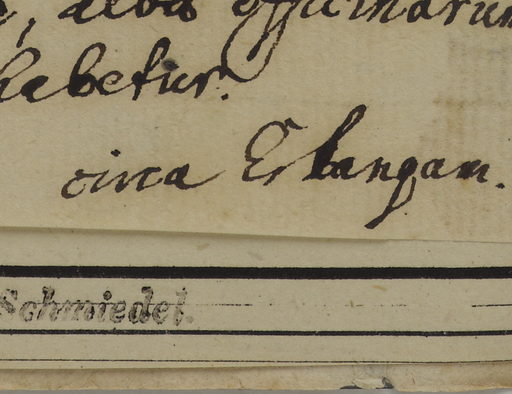 , alba officinarum
habetur.
circa Erlangam.
Schmiedel.